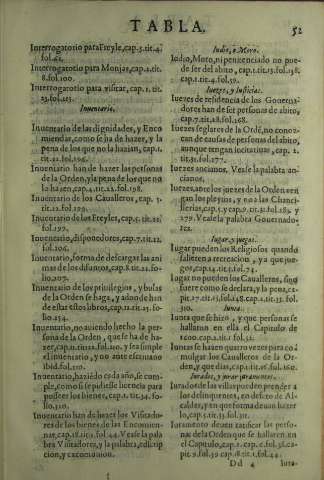 TABLA.
52
Interrogatorio para Freyle, cap.5.tit.4.
fol.42.
Interrogatorio para Monjas, cap.1.tit.
8.fol.100.
Interrogatorio para visitar, cap.1.tit.
Inuentario.
Inuentario de las dignidades, y Enco
miendas, como se ha de hazer, y la
pena de los que no la hazian, cap.1.
Inuentario han de hazer las personas
de la Orden, y la pena de los que no
lo hazen, cap.4.tit.22.fol.198.
Inuentario de los Caualleros, cap.3.
Inuentario de los Freyles, cap.5.tit.22.
fol.197.
Inuentario, disponedores, cap.7.tit.22.
fol.206.
Inuentario, forma de descargas las ani
mas de los difuntos, cap.8.tit.22.fo-
lio.207.
Inuentario de los priuilegios, y bulas
de la Orden se haga, y adonde han
de estar estos libros, cap.13.tit.23.fo-
lio.234.
Inuentario, no auiendo hecho la per-
sona de la Orden, que se ha de ha-
el inuentario, y no ante escriuano
ibid.fol.210.
Inuentario, haziendo cada año, se cum-
ple, como se pidiesse licencia para
posseer los bienes, cap.1.tit.34.fo-
lio.310.
Inuentario han de hazer los Visitado-
res de los bienes, de las Encomien-
das, cap.18.tit.1.fol.44. Vease la pala
bra Visitadores, y la palabra, edificio,
Iudio, o Moro.
Iudio, Moro, ni penitenciado no pue-
de ser del abito, cap.1.tit.13.fol.138.
cap.1.tit.4.fol.59.
Iuezes, y Iusticias.
Iuezes de residencia de los Gouerna-
dores han de ser personas de abito,
cap.7.tit.18.fol.168.
Iuezes seglares de la Ordē, no conoz-
can de causas de personas del abito,
aunque tengan incitatiuas, cap.2.
tit.31.fol.277.
Iuezes ancianos, Vease la palabra an-
cianos.
Iuezes, ante los juezes de la Orden ven
gan los pleytos, y no a las Chanci-
279. Vease la palabra Gouernado-
res.
Iugar, y juegos.
Iugar pueden los Religiosos quando
salieren a recreacion, y a que jue-
gos, cap.14.tit.5.fol.74.
Iugar no pueden los Caualleros, sino
fuere como se declara, y la pena, ca-
310.
Iunta.
Iunta que se hizo, y que personas se
hallaron en ella el Capitulo de
Iuntas se hazen quatro vezes para co
mulgar los Caualleros de la Or-
den, y que dias, cap.1.tit.16.fol.160.
Iurados, y jurar juramentos.
Iurados de las villas pueden prender a
los delinquentes, en defeto de Al-
caldes, y en que forma de uan hazer-
lo, cap.5.tit.25.fol.213.
Iuramento deuen ratificar las perso-
nas de la Orden que se hallaren en
Dd 4
Iura-